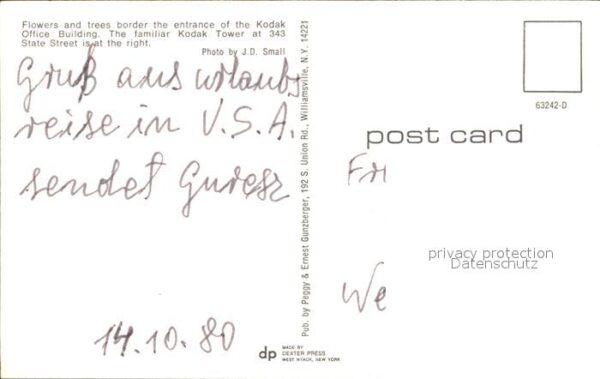 Flowers and trees border the entrance of the Kodak
Office Building. The familiar Kodak Tower at 343
State Street is at the right.
Photo by J.D. Small
Gruß aus urlaubs
reise in U.S.A.
sendet
14.10.80
Pub. by Peggy & Ernest Gunzberger, 192 S. Union Rd., Williamsville, N.Y. 14221
dp
MADE BY
DEXTER PRESS
WEST NYACK, NEW YORK
63242-D
post card
Fri
privacy protection
Datenschutz
We